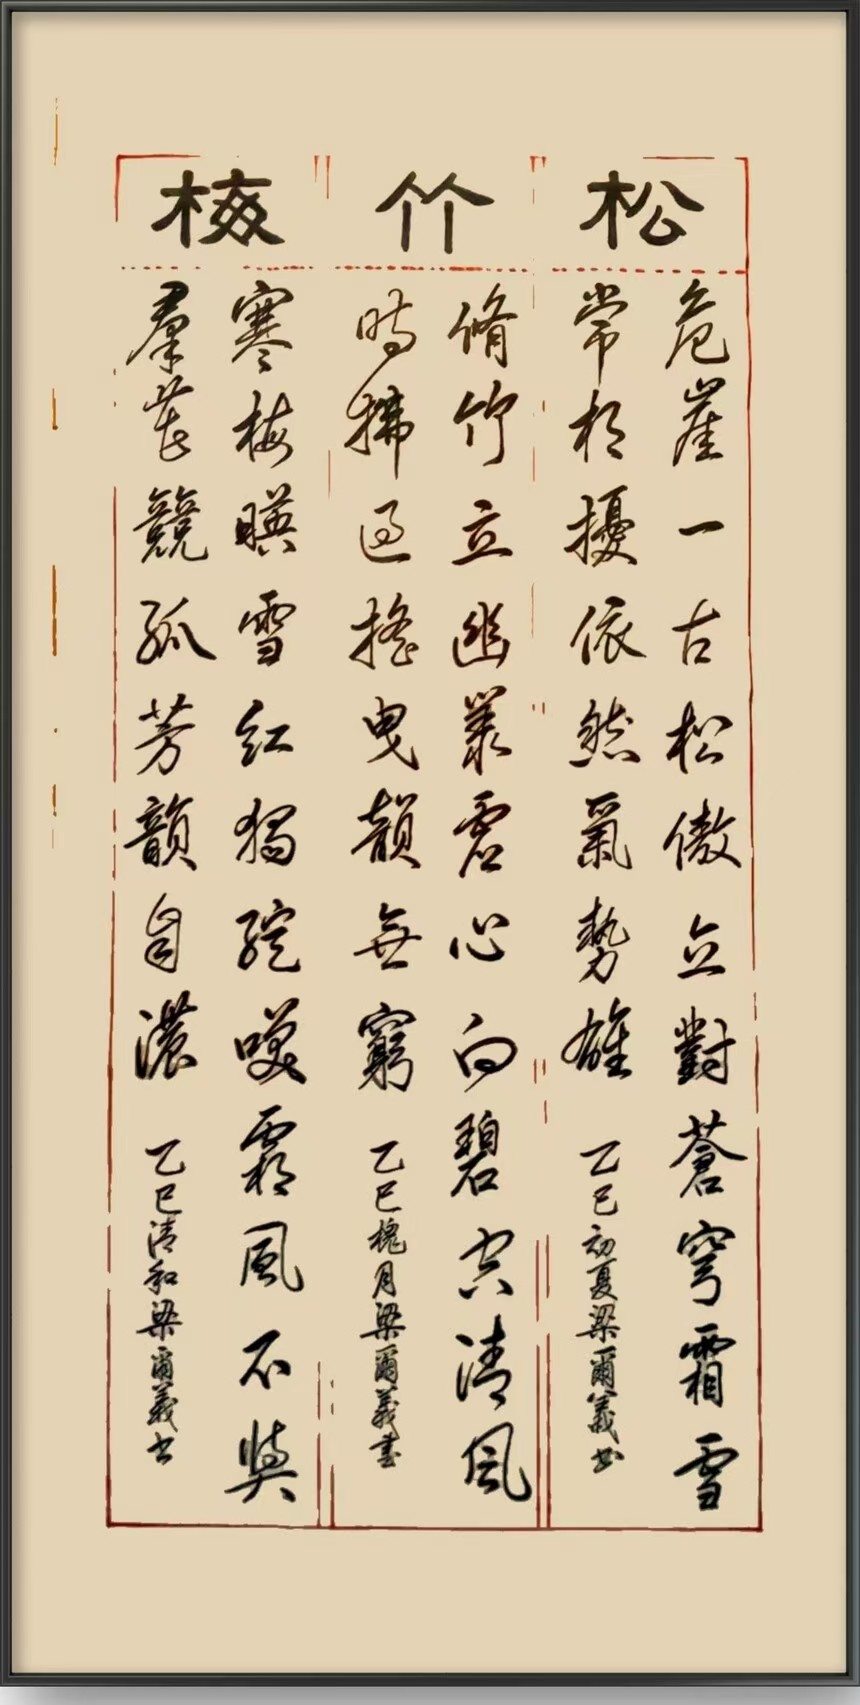 松
危崖一古松傲立對蒼穹霜雪
常相擾依然氣勢雄
乙巳初夏梁爾義書
竹
脩竹立幽叢虛心向碧空清風
時拂過搖曳韻無窮
乙巳槐月梁爾義書
梅
寒梅暎雪紅獨綻咲霜風不與
羣花競孤芳韻自濃
乙巳清和梁爾義書